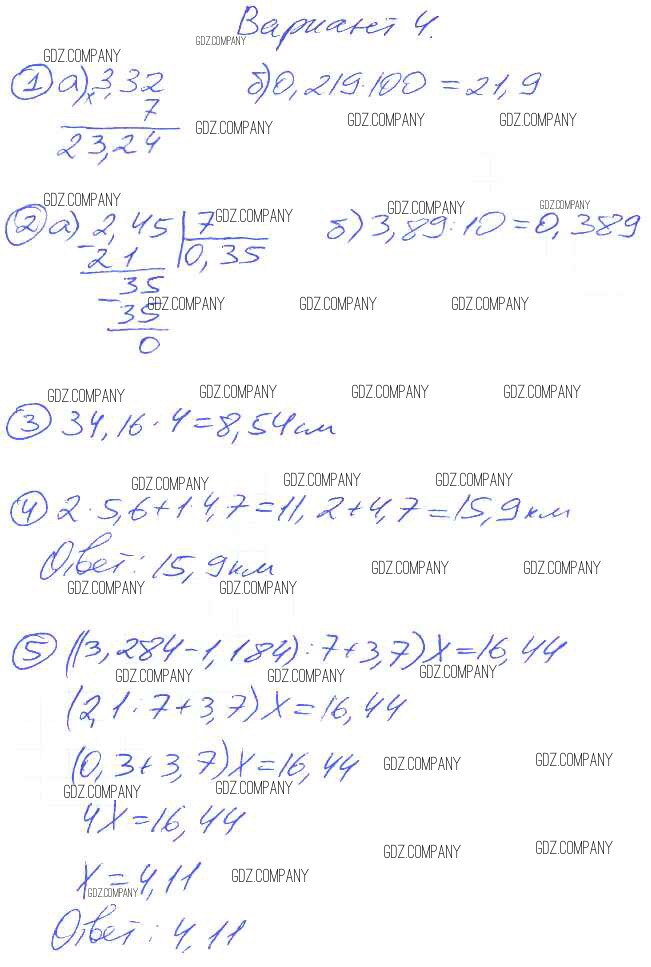 Вариант 4.
GDZ.COMPANY
GDZ.COMPANY
1 а) 3,32 б) 0,219·100 = 21,9
× 7
GDZ.COMPANY GDZ.COMPANY GDZ.COMPANY
23,24
GDZ.COMPANY GDZ.COMPANY GDZ.COMPANY GDZ.COMPANY
2 а) 2,45 7 б) 3,89:10=0,389
- 21 0,35
35
GDZ.COMPANY GDZ.COMPANY GDZ.COMPANY
- 35
0
GDZ.COMPANY GDZ.COMPANY GDZ.COMPANY GDZ.COMPANY
3 34,16·4=8,54см
GDZ.COMPANY GDZ.COMPANY GDZ.COMPANY
4 2·5,6+1·4,7=11,2+4,7=15,9км
Ответ: 15,9км
GDZ.COMPANY GDZ.COMPANY
GDZ.COMPANY GDZ.COMPANY
5 ((3,284-1,184):7+3,7)X=16,44
GDZ.COMPANY GDZ.COMPANY GDZ.COMPANY
(2,1:7+3,7)X=16,44
(0,3+3,7)X=16,44
GDZ.COMPANY GDZ.COMPANY
GDZ.COMPANY GDZ.COMPANY
4X=16,44
GDZ.COMPANY GDZ.COMPANY
X=4,11
GDZ.COMPANY GDZ.COMPANY
Ответ: 4,11